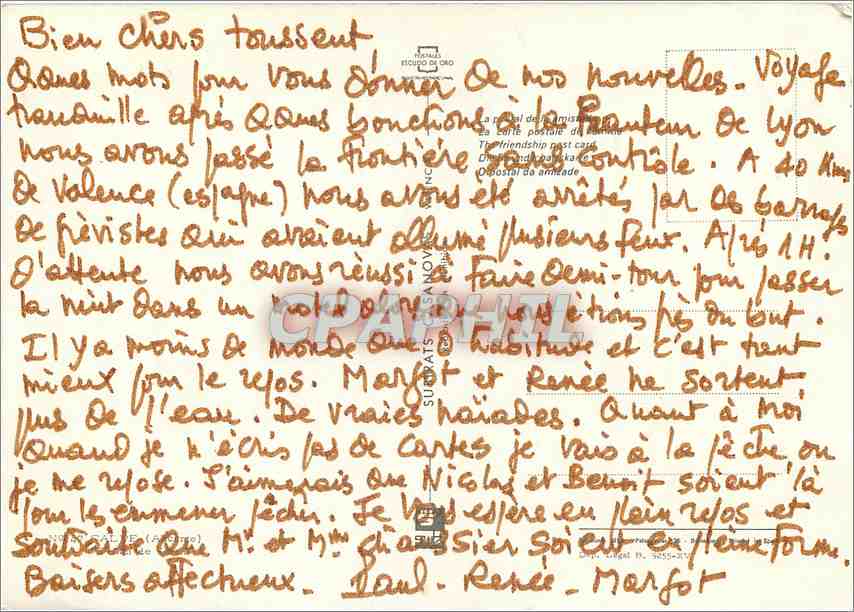 Bien chers toussent
POSTALES
ESCUDO DE ORO
Qques mots pour vous donner de nos nouvelles. Voyage
tranquille après Qques bonctions à la Hauteur de Lyon
La postal de la amistad
La carte postale de l'amitié
The friendship post card
O postal da amizade
nous avons passé la frontière sans contrôle. A 40 Kms
de Valence (espagne) nous avons été arrêtés par des barrages
de grèvistes qui avaient allumé plusieurs feux. Après 1H.
d'attente nous avons réussi à faire demi-tour pour passer
la nuit dans un motel alors que nous étions près du but.
SUBIRATS CASANOVAS
CPAPHIL
Il y a moins de monde que d'habitude et c'est tant
mieux pour le repos. Margot et Renée ne sortent
plus de l'eau. De vraies naïades. Quant à moi
quand je n'écris pas de cartes je vais à la pêche ou
je me repose. J'aimerais que Nicolas et Benoit soient là
pour les emmener pêcher. Je vous espère en plein repos et
souhaite que Mr et Mme soient en pleine forme.
CALPE (Alicante)
Dep. Legal B. 9255-XV
Baisers affectueux. Paul - Renée - Margot